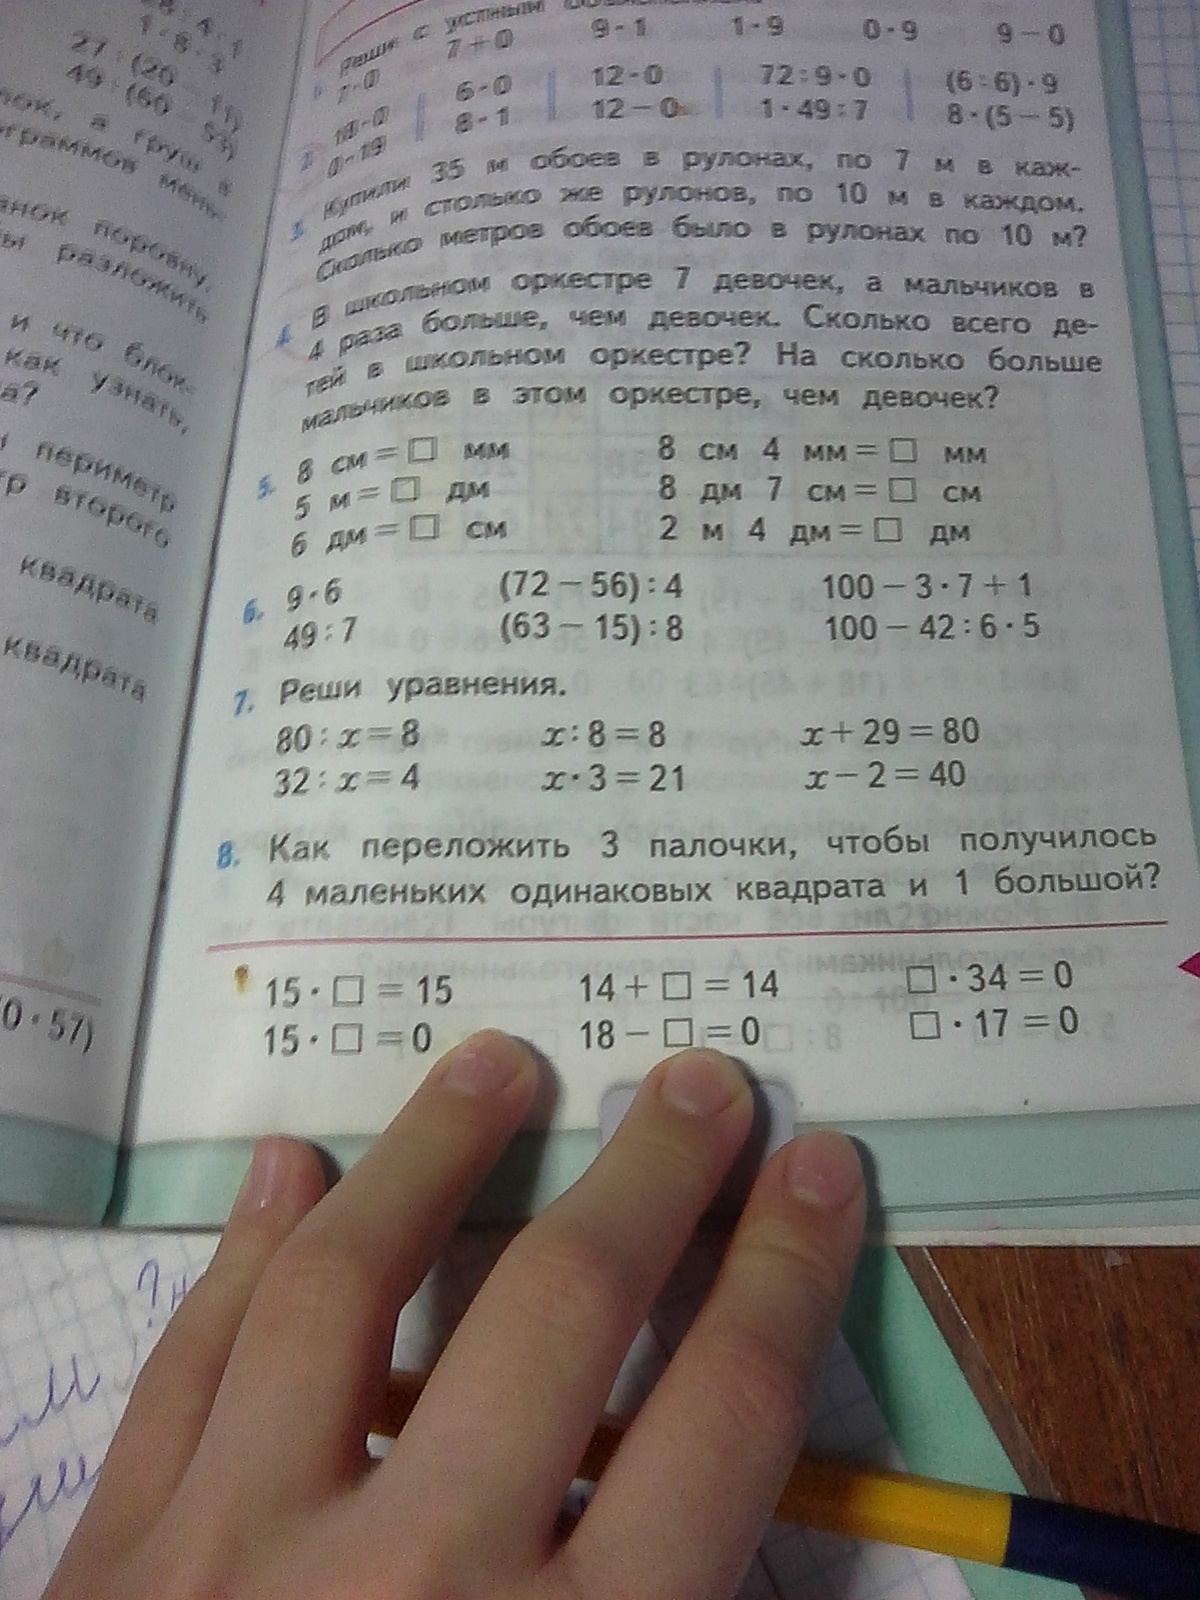 28 : 4 · 1
1 · 8 · 3
27 : (20 − 11)
49 : (60 − 53)
а груш в
граммов мень-
поровну.
разложить
и что блок-
как узнать,
а?
периметр
второго
квадрата
квадрата
0 · 57)
Реши с устным
7 · 0 7 + 0 9 · 1 1 · 9 0 · 9 9 − 0
2. 18 · 0 6 · 0 12 · 0 72 : 9 · 0 (6 : 6) · 9
0 · 19 8 · 1 12 − 0 1 · 49 : 7 8 · (5 − 5)
3. Купили 35 м обоев в рулонах, по 7 м в каж-
дом, и столько же рулонов, по 10 м в каждом.
Сколько метров обоев было в рулонах по 10 м?
4. В школьном оркестре 7 девочек, а мальчиков в
4 раза больше, чем девочек. Сколько всего де-
тей в школьном оркестре? На сколько больше
мальчиков в этом оркестре, чем девочек?
5. 8 см = □ мм 8 см 4 мм = □ мм
5 м = □ дм 8 дм 7 см = □ см
6 дм = □ см 2 м 4 дм = □ дм
6. 9 · 6 (72 − 56) : 4 100 − 3 · 7 + 1
49 : 7 (63 − 15) : 8 100 − 42 : 6 · 5
7. Реши уравнения.
80 : x = 8 x : 8 = 8 x + 29 = 80
32 : x = 4 x · 3 = 21 x − 2 = 40
8. Как переложить 3 палочки, чтобы получилось
4 маленьких одинаковых квадрата и 1 большой?
15 · □ = 15 14 + □ = 14 □ · 34 = 0
15 · □ = 0 18 − □ = 0 □ · 17 = 0